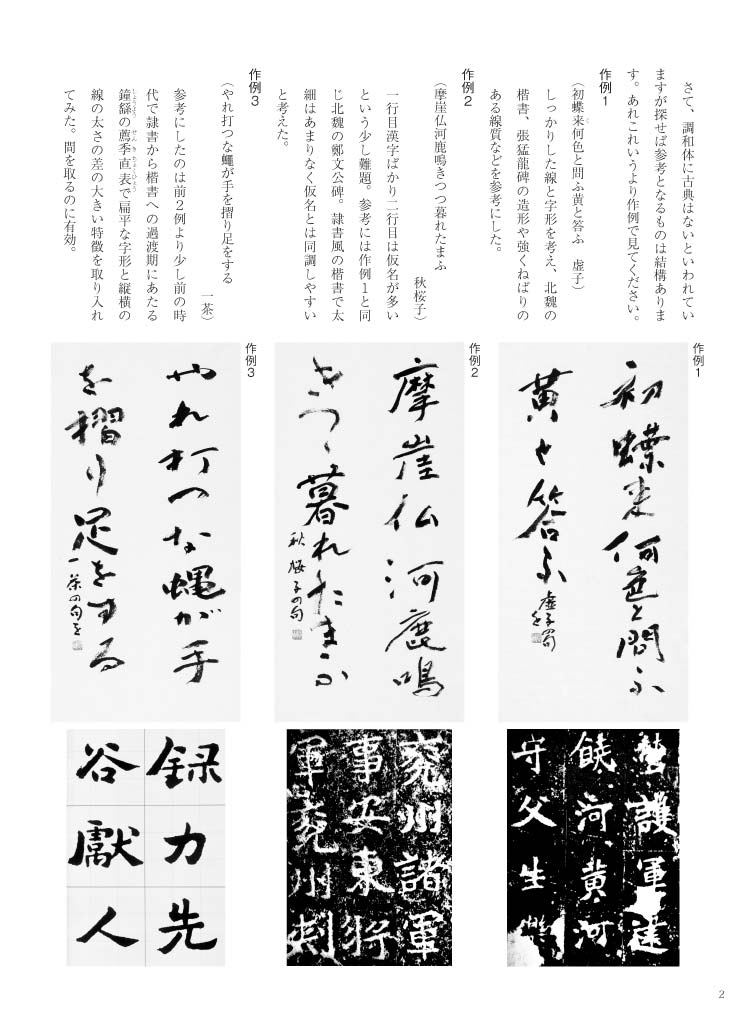 さて、調和体に古典はないといわれてい
ますが探せば参考となるものは結構ありま
す。あれこれいうより作例で見てください。
作例1
（初蝶来何色と問ふ黄と答ふ　虚子）
しっかりした線と字形を考え、北魏の
楷書、張猛龍碑の造形や強くねばりの
ある線質などを参考にした。
作例2
（摩崖仏河鹿鳴きつつ暮れたまふ
秋桜子）
一行目漢字ばかり二行目は仮名が多い
という少し難題。参考には作例１と同
じ北魏の鄭文公碑。隷書風の楷書で太
細はあまりなく仮名とは同調しやすい
と考えた。
作例3
（やれ打つな蠅が手を摺り足をする
一茶）
参考にしたのは前２例より少し前の時
代で隷書から楷書への過渡期にあたる
鐘繇の薦季直表で扁平な字形と縦横の
線の太さの差の大きい特徴を取り入れ
てみた。間を取るのに有効。
作例1
初蝶来何色と問ふ
黄と答ふ
虚子句
作例2
摩崖仏河鹿鳴
きつゝ暮れたまふ
秋桜子の句
作例3
やれ打つな蠅が手
を摺り足をする
一茶の句を
護軍
饒河黄河
守父生
兗州諸軍
事安東将
軍兗州刺
録力先
谷獻人
2